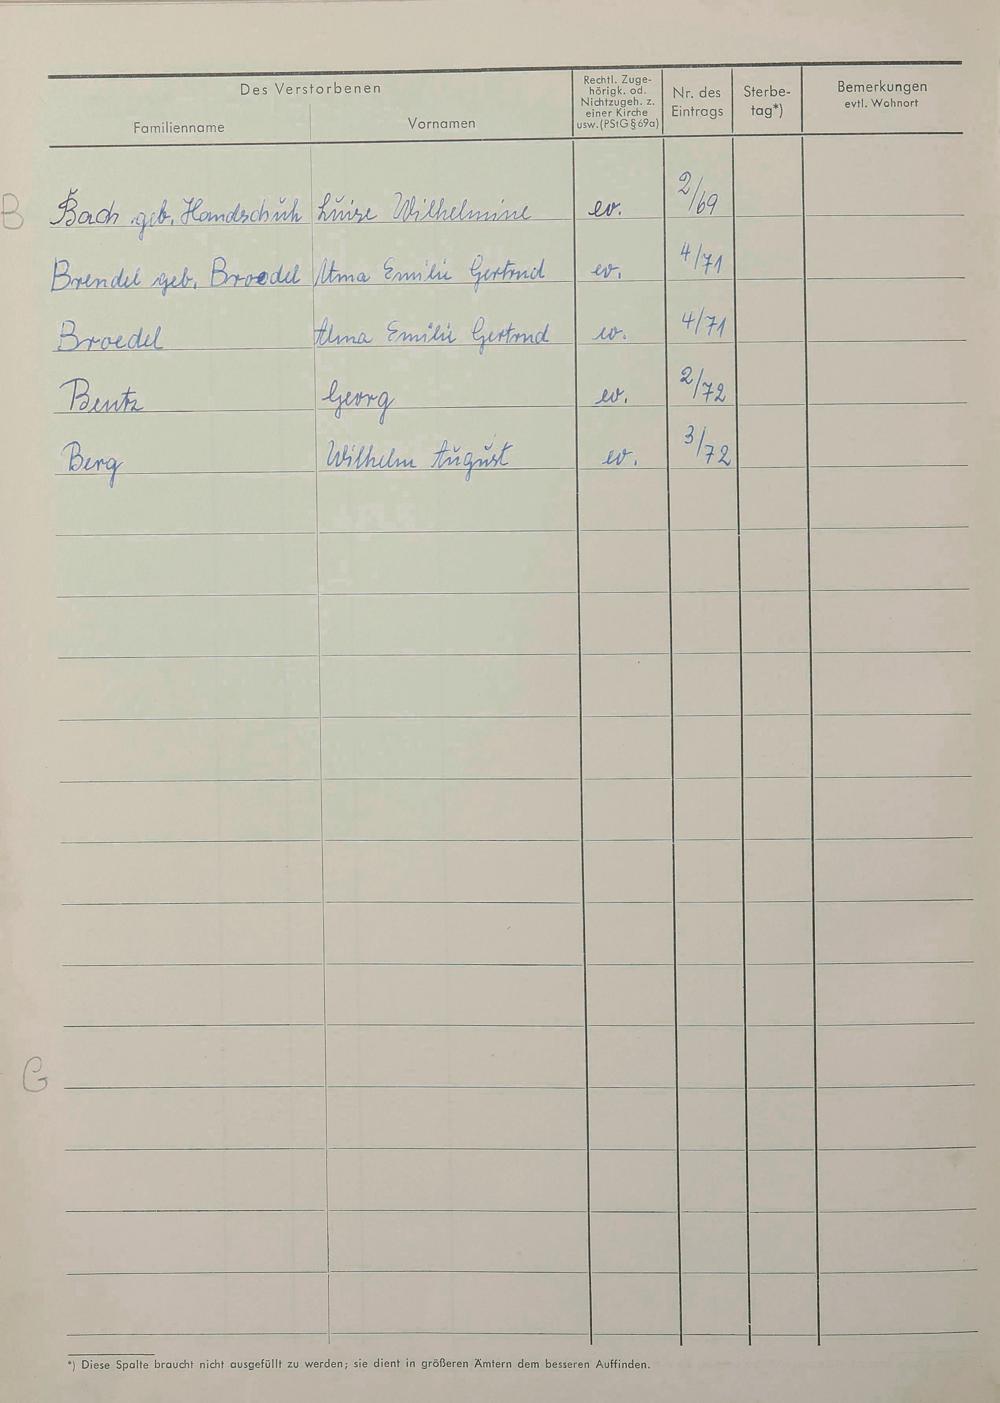 Des Verstorbenen
Familienname
Vornamen
Rechtl. Zuge-
hörigk. od.
Nichtzugeh. z.
einer Kirche
usw. (PStG § 69a)
Nr. des
Eintrags
Sterbe-
tag*)
Bemerkungen
evtl. Wohnort
B
Bach geb. Handschuh Luise Wilhelmine ev. 2/69
Brendel geb. Broedel Alma Emilie Gertrud ev. 4/71
Broedel Alma Emilie Gertrud ev. 4/71
Bentz Georg ev. 2/72
Berg Wilhelm August ev. 3/72
G
*) Diese Spalte braucht nicht ausgefüllt zu werden; sie dient in größeren Ämtern dem besseren Auffinden.